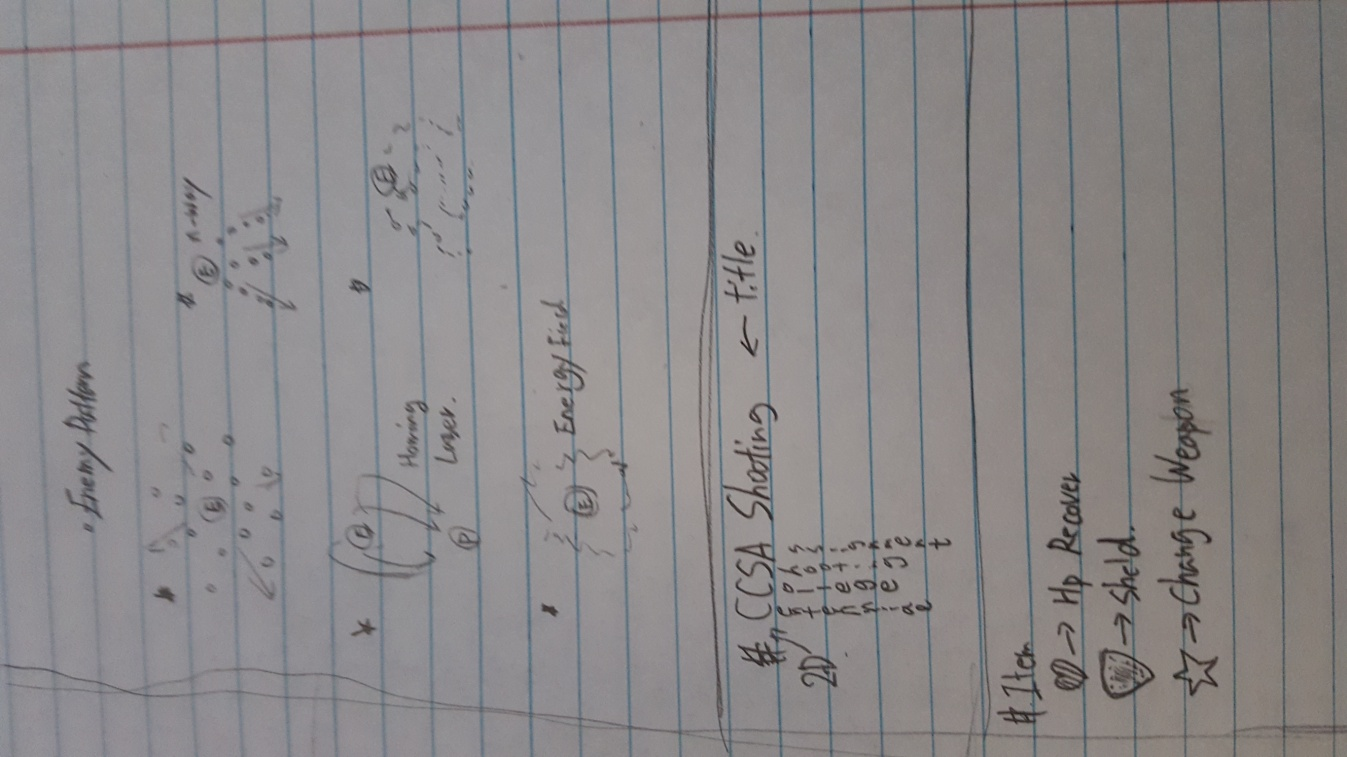 Enemy Pattern
E
E n-way
E
Homing
Laser.
P
E
E Energy Field
# CCSA Shooting ← title.
2D
# Item
→ Hp Recover
→ Sheld.
→ Change Weapon